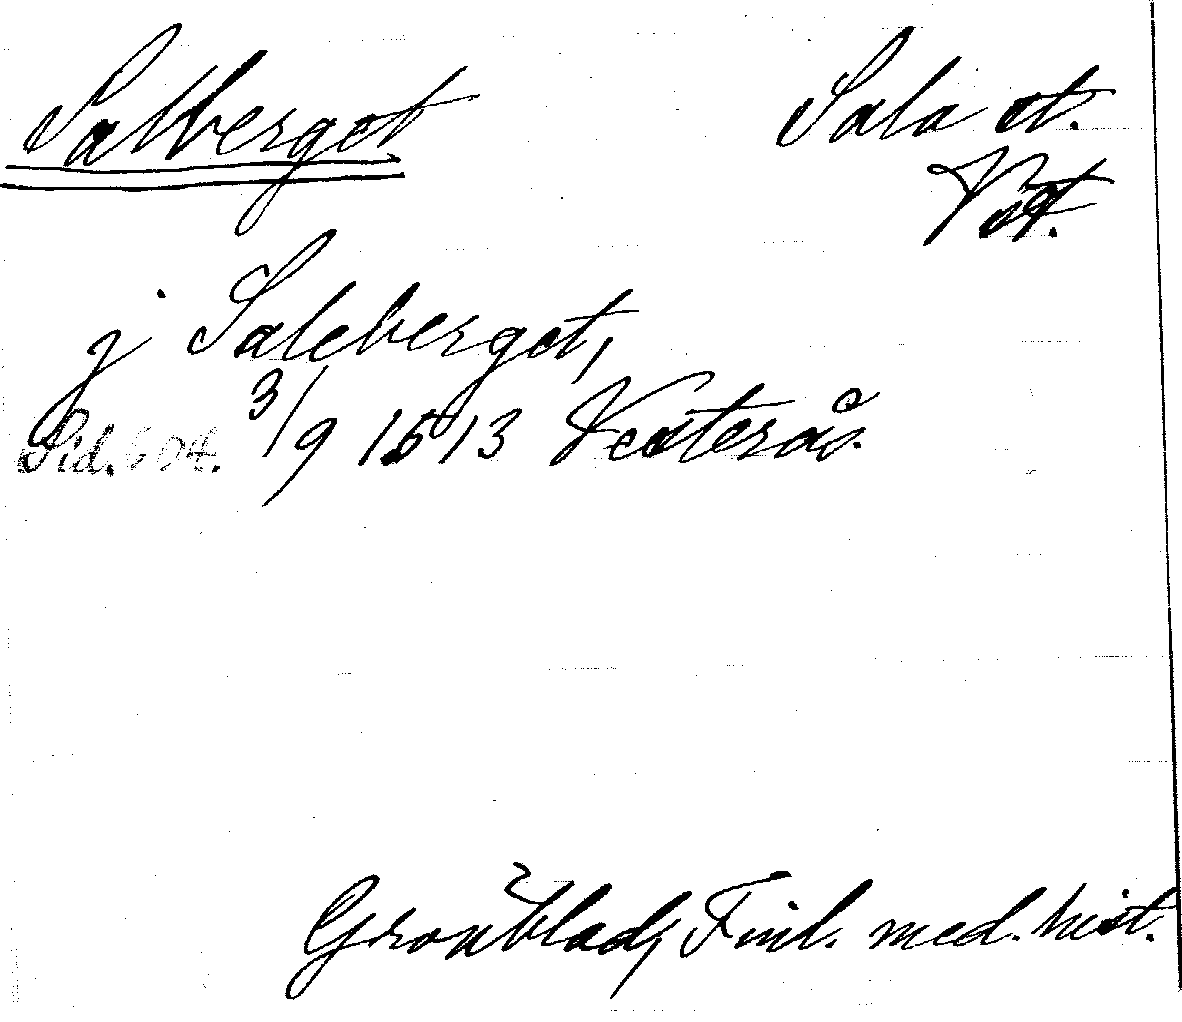 Salberget
Sala st.
Vstl.
j Saleberget,
Sid. 604. 3/9 1513 Vesterås.
Grönblad, Finl. med. hist.